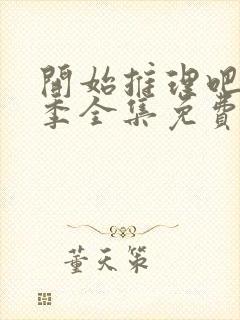 開始推理吧
季全集免費
董天策